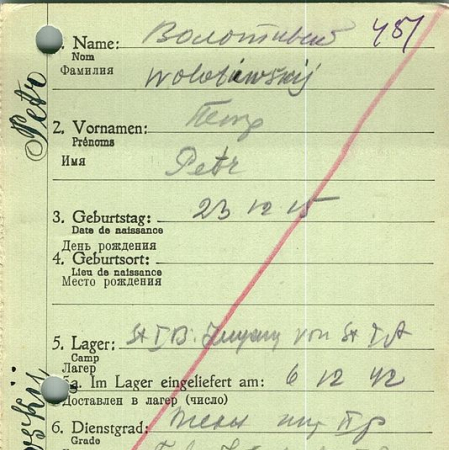 1. Name: Волотивский 451
Nom
Фамилия Wolotiwskij
2. Vornamen: Петр
Prénoms
Имя Petr
3. Geburtstag: 23 12 15
Date de naissance
День рождения
4. Geburtsort:
Lieu de naissance
Место рождения
5. Lager: St I B. Zugang von St I A
Camp
Лагерь
5a. Im Lager eingeliefert am: 6 12 42
Доставлен в лагерь (число)
6. Dienstgrad:
Grade
Petr